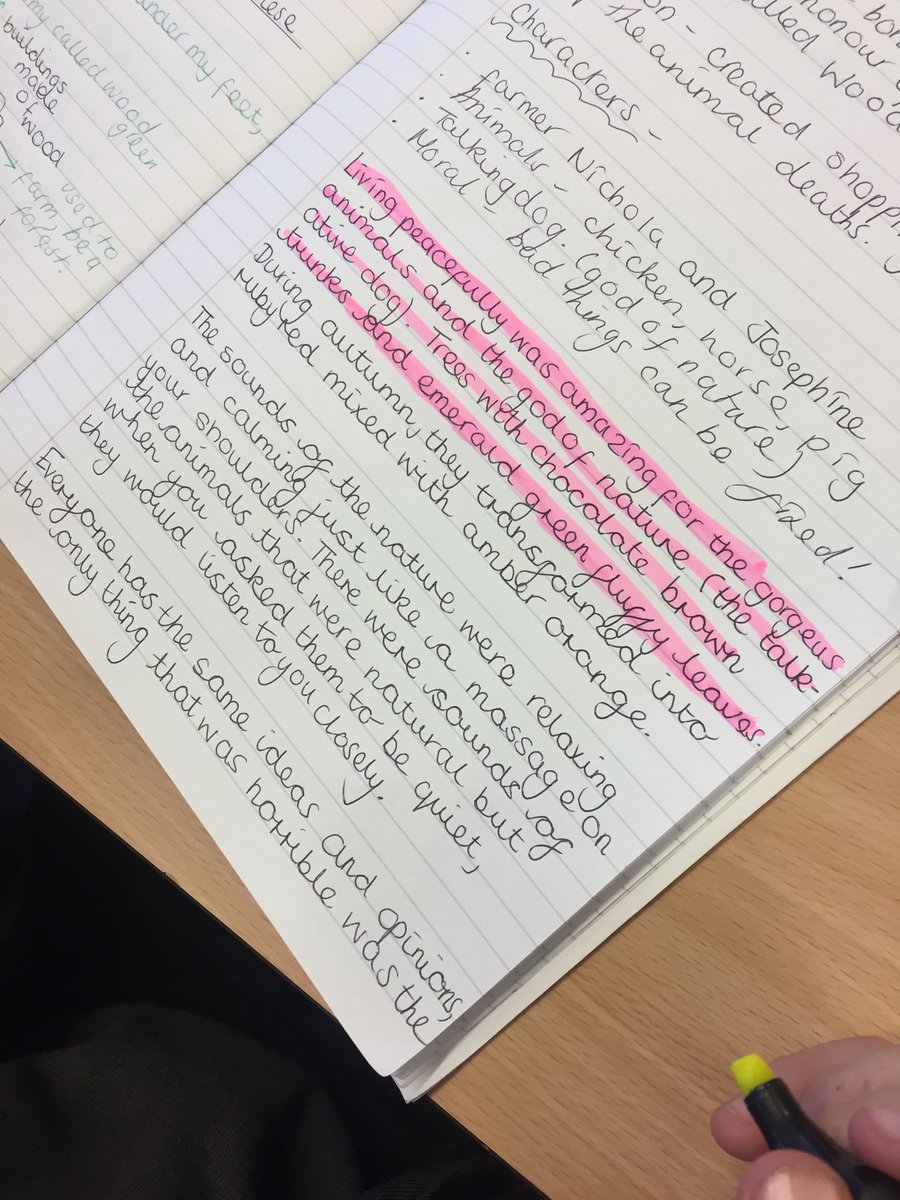 nese
under my feet,
my called wood
green
buildings
made
of wood
used to
farm be a
forest.
bon
honour
called Wood
on - created shoppin
The animal deaths.
Charackers -
· Farmer Nichola and Josephine
· Animals - chicken, horse, pig
· Talking dog. (god of nature)
· Moral - bad things can be fixed!
living peacefully was amazing for the gorgeus
animals and the god of nature (the talk-
ative dog). Trees with chocolate brown
trunks and emerald green fluffy leaves.
During autumn, they transformd into
ruby Red mixed with amber orange.
The sounds of the nature were relaxing
and calming just like a massage on
your shoulders. There were sounds of
the animals that were natural but
when you asked them to be quiet,
they would listen to you closely.
Everyone has the same ideas and opinions,
the only thing that was horrible was the